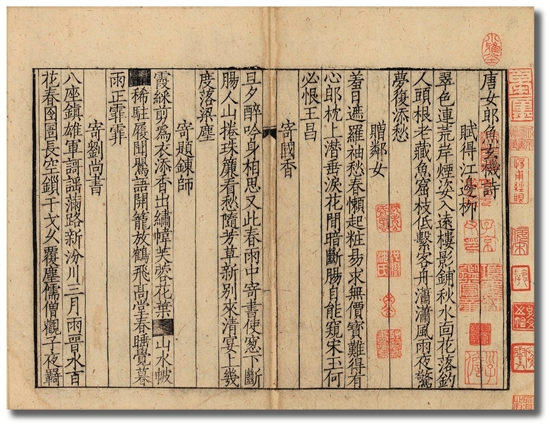 唐女郎魚玄機詩
賦得江邊柳
翠色連荒岸煙姿入遠樓影鋪秋水面花落釣
人頭根老藏魚窟枝低繫客舟瀟瀟風雨夜驚
夢復添愁
贈鄰女
羞日遮羅袖愁春懶起粧易求無價寶難得有
心郎枕上潛垂淚花間暗斷腸自能窺宋玉何
必恨王昌
寄國香
旦夕醉吟身相思又此春雨中寄書使窓下斷
腸人山捲珠簾看愁隨芳草新別來清宴上幾
度落梁塵
寄題鍊師
霞綵剪為衣添香出繡幃芙蓉花葉山水帔
稀駐履聞鶯語開籠放鶴飛高堂春睡覺暮
雨正霏霏
寄劉尚書
八座鎮雄軍謌謡滿路新汾川三月雨晉水百
花春囹圄長空鎖干戈久覆塵儒僧觀子夜羈